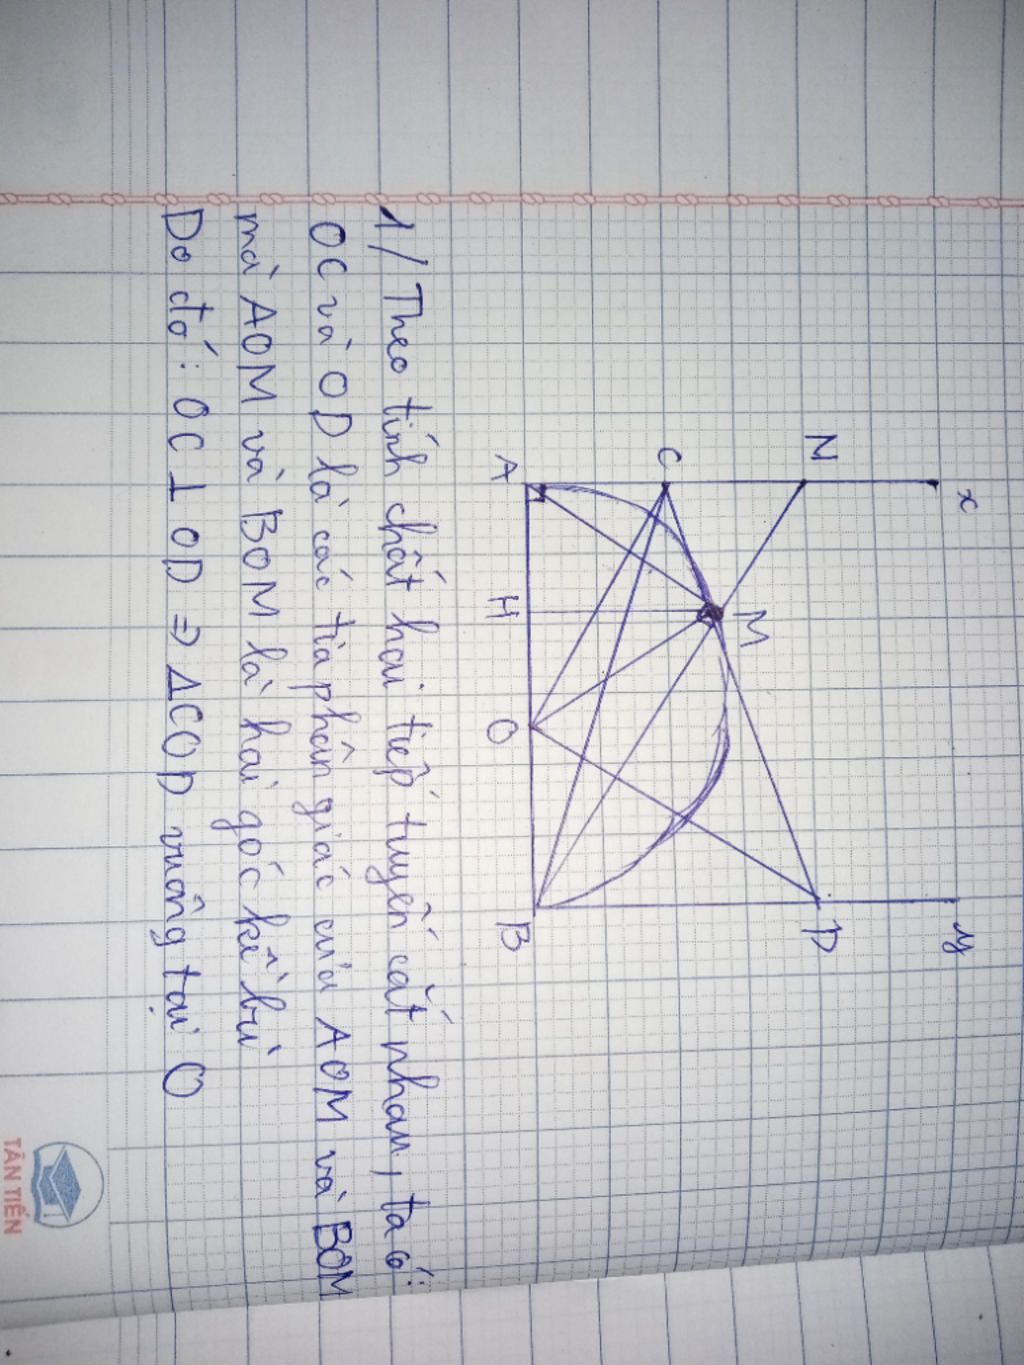 x
y
N
C
M
D
A
H
O
B
1/ Theo tính chất hai tiếp tuyến cắt nhau, ta có:
OC và OD là các tia phân giác của AOM và BOM
mà AOM và BOM là hai góc kề bù
Do đó: OC ⊥ OD => ΔCOD vuông tại O
TÂN TIẾN